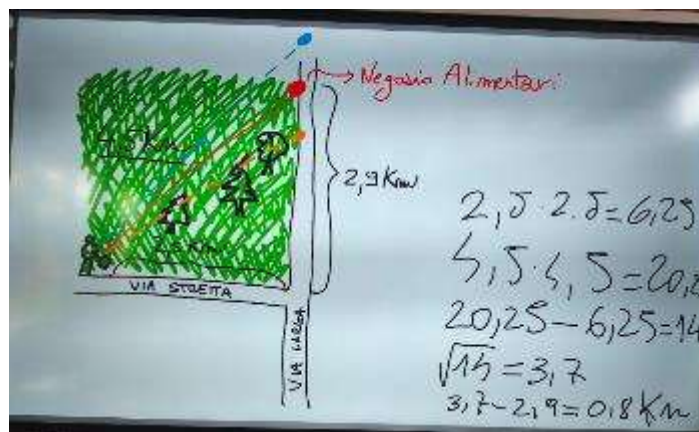 Negozio Alimentari
4,5 Km
2,9 Km
2,5 Km
VIA STRETTA
VIA LARGA
2,5 · 2.5 = 6,25
4,5 · 4,5 = 20,2
20,25 - 6,25 = 14
√14 = 3,7
3,7 - 2,9 = 0,8 Km